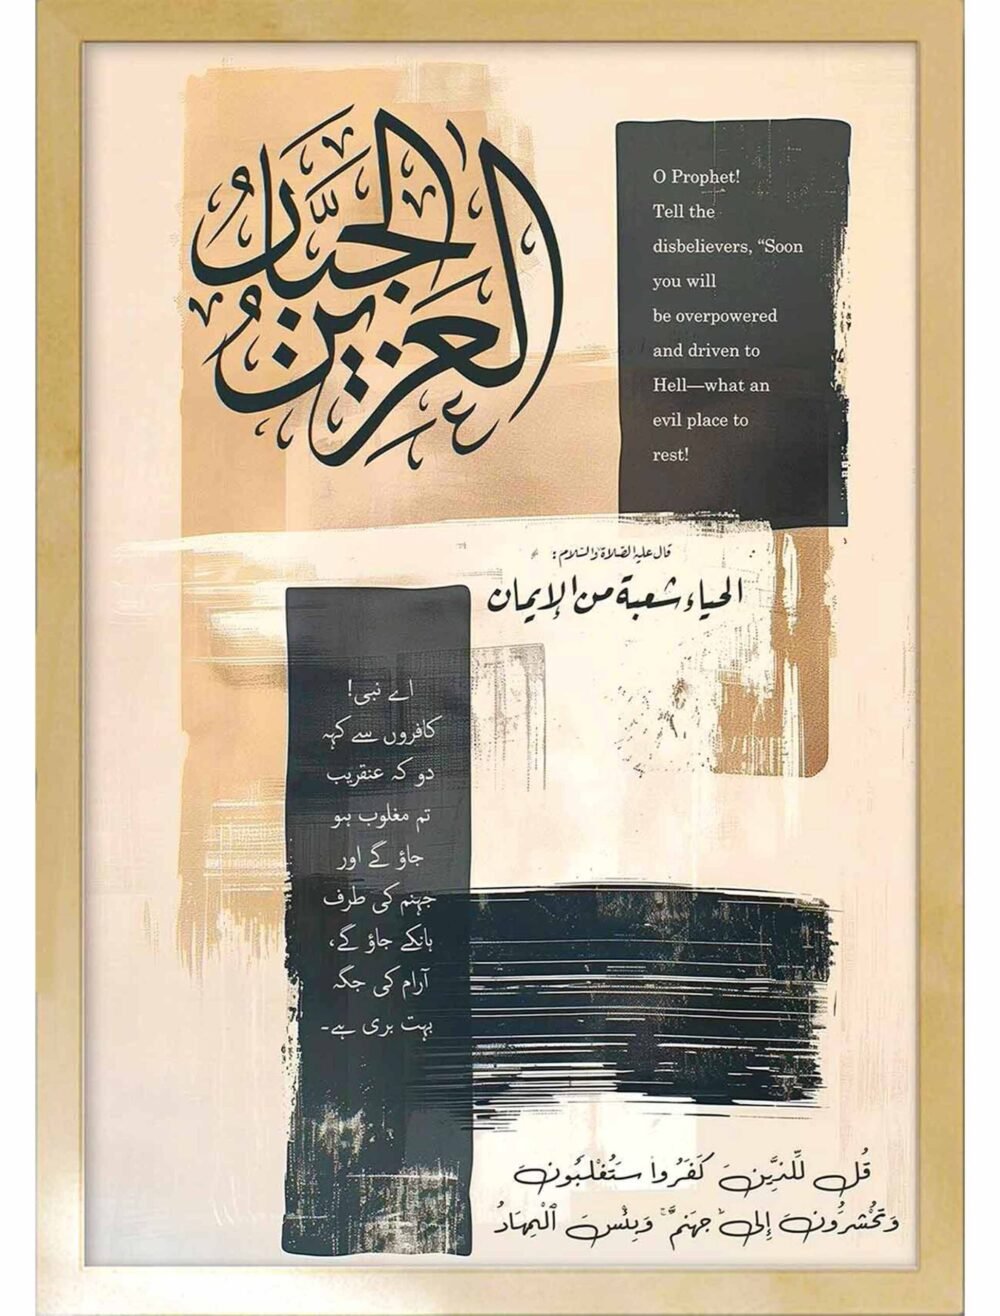 العزيز
الجبار
O Prophet!
Tell the
disbelievers, “Soon
you will
be overpowered
and driven to
Hell—what an
evil place to
rest!
قال عليه الصلاة والسلام:
الحياء شعبة من الإيمان
اے نبی!
کافروں سے کہہ
دو کہ عنقریب
تم مغلوب ہو
جاؤ گے اور
جہنم کی طرف
ہانکے جاؤ گے،
آرام کی جگہ
بہت بری ہے۔
قُل لِّلَّذِينَ كَفَرُوا سَتُغْلَبُونَ
وَتُحْشَرُونَ إِلَىٰ جَهَنَّمَ ۚ وَبِئْسَ ٱلْمِهَادُ